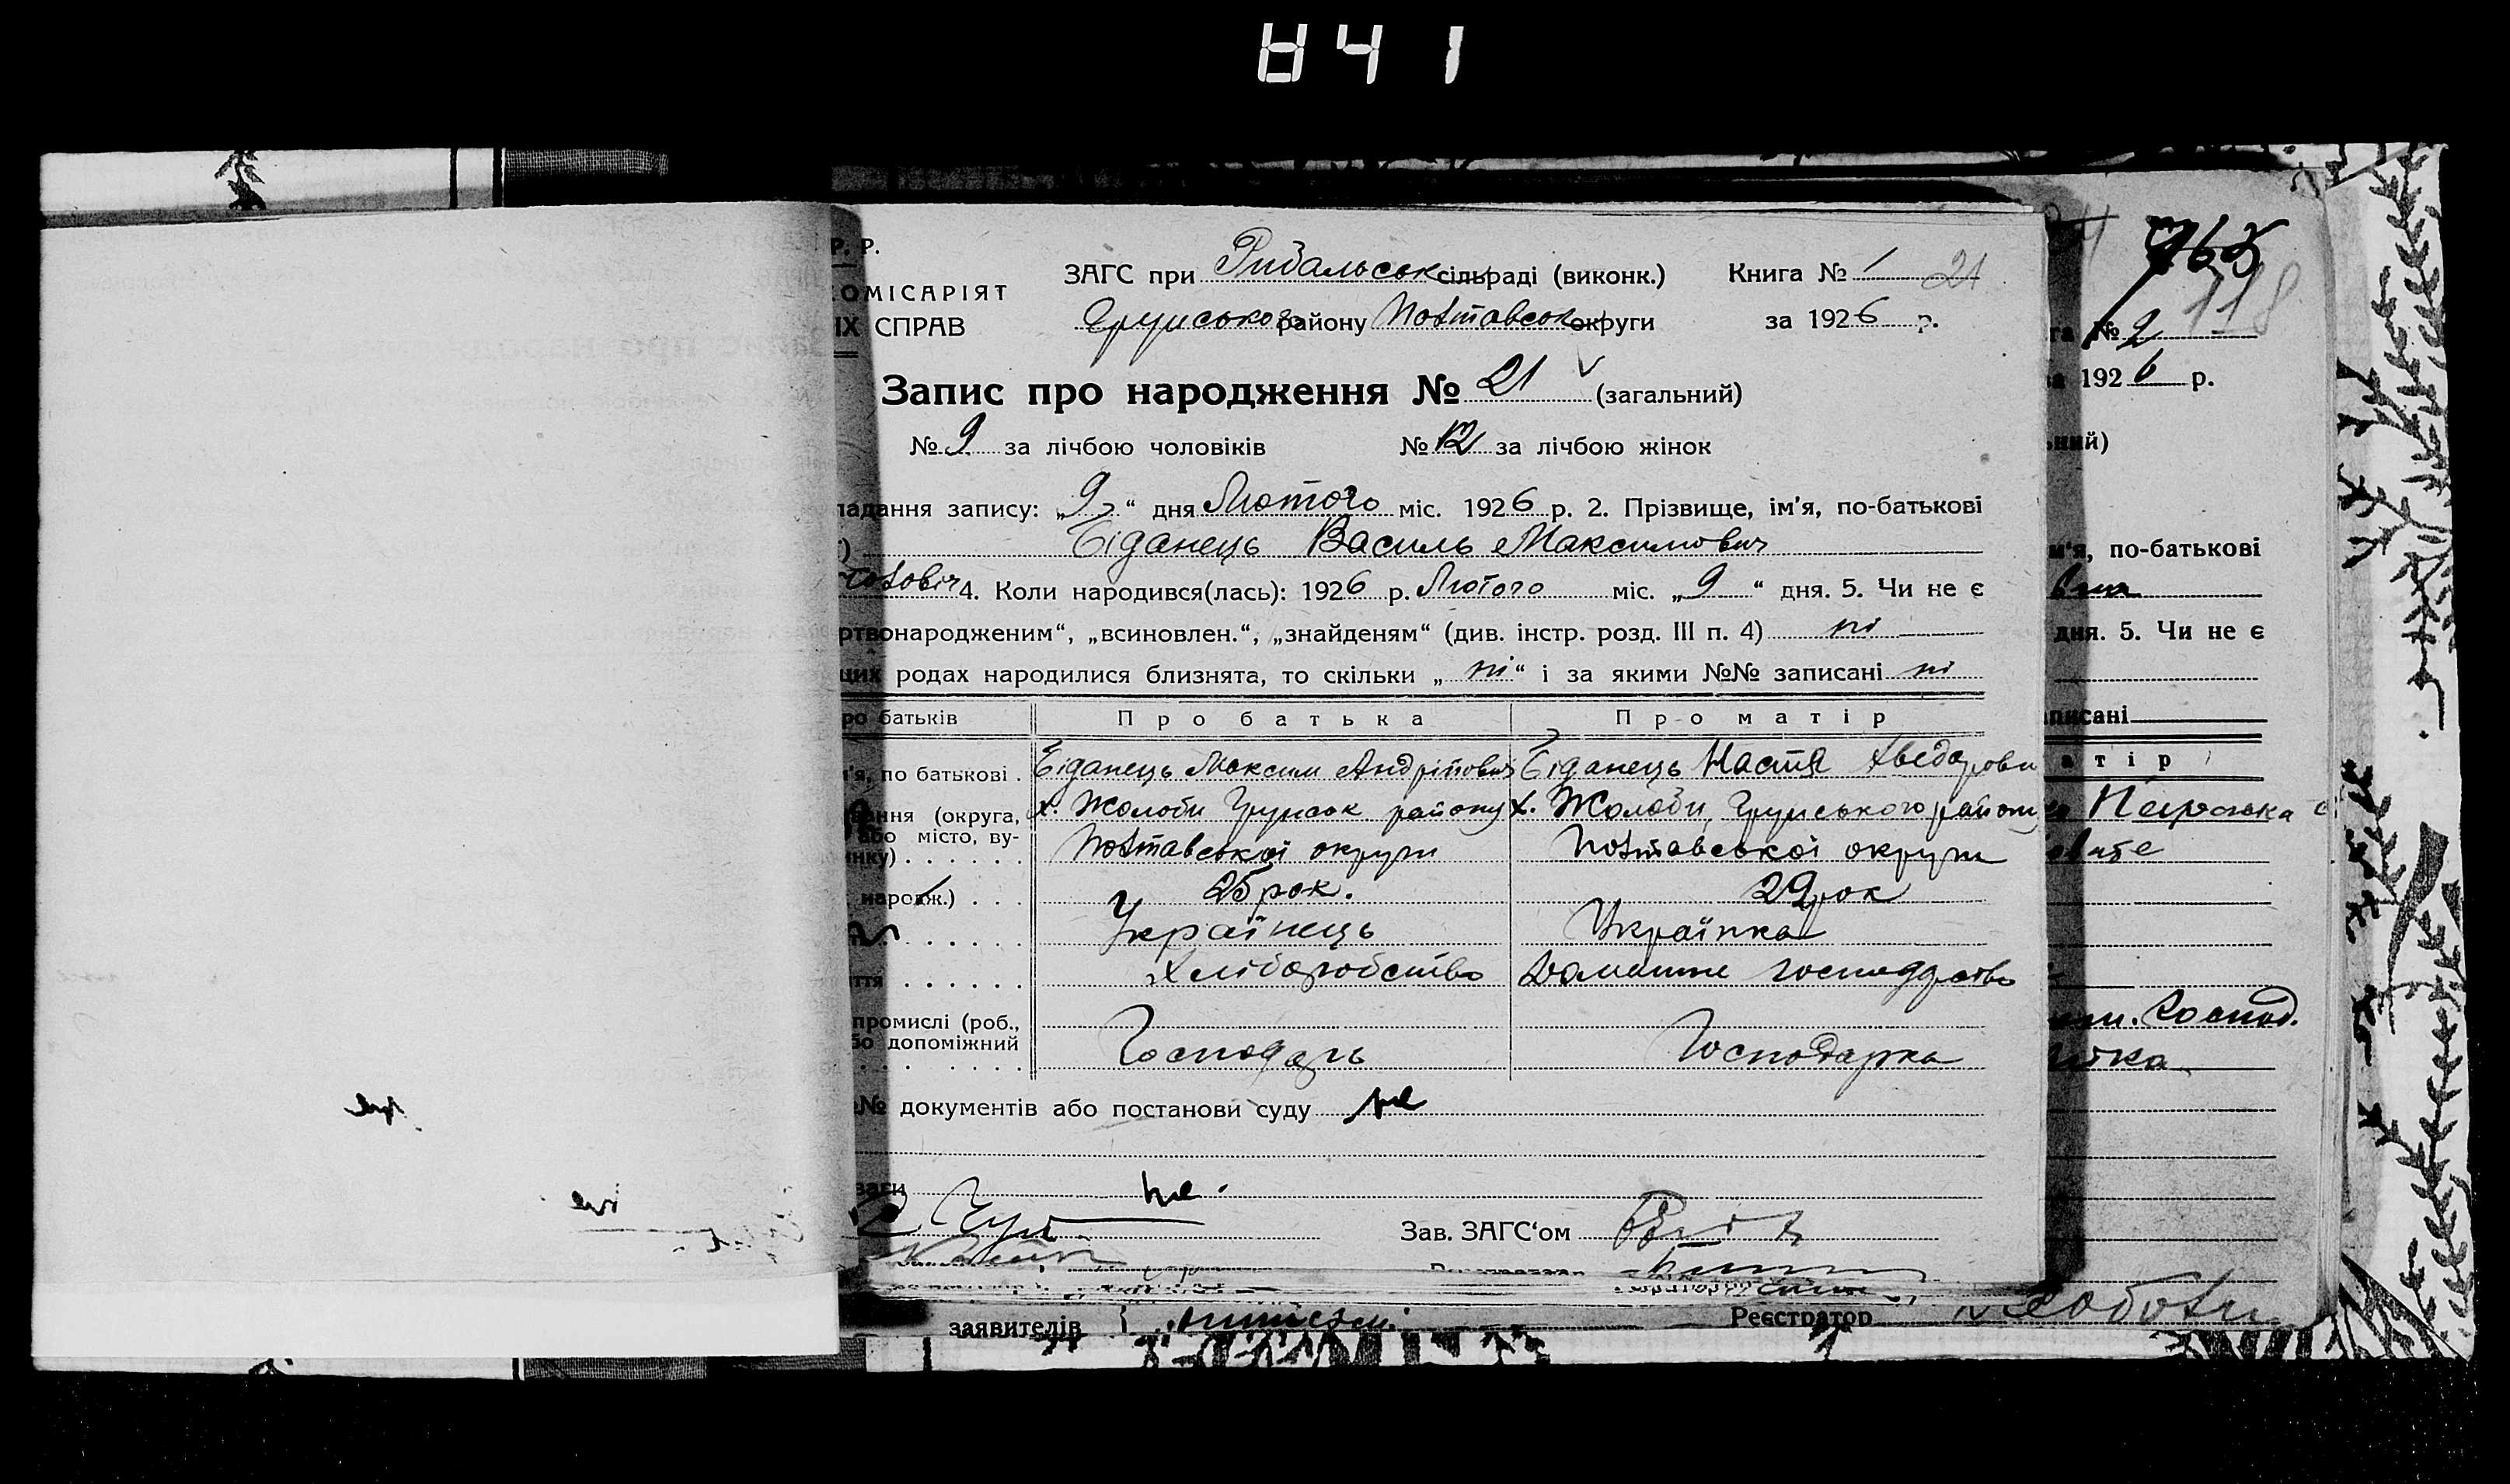 841
Р. Р.
ОМІСАРІЯТ
ІХ СПРАВ
ЗАГС при Рибальськ сільраді (виконк.) Книга № 1 21
Грунського району Полтавськ округи за 1926 р.
Запис про народження № 21 (загальний)
№ 9 за лічбою чоловіків № 12 за лічбою жінок
ладання запису: „9“ дня Лютого міс. 1926 р. 2. Прізвище, ім'я, по-батькові
Біданець Василь Максимович
4. Коли народився(лась): 1926 р. Лютого міс. „9“ дня. 5. Чи не є
ртвонародженим“, „всиновлен.“, „знайденям“ (див. інстр. розд. III п. 4) ні
цих родах народилися близнята, то скільки „ні“ і за якими №№ записані ні
ро батьків Про батька Про матір
м'я, по батькові . Біданець Максим Андрійович Біданець Настя Хведоровн
ання (округа, х. Жолоби Грунськ району х. Жолоби Грунського району
або місто, ву-
инку) . . . . . . Полтавської округи Полтавської округи
народж.) . . . 25 рок. 29 рок
Українець Українка
ття . . . . . . Хліборобство Домашне господарство
промислі (роб.,
бо допоміжний Господарь Господарка
№ документів або постанови суду не
ваги не.
Зав. ЗАГС'ом
заявителів Реєстратор
765
118
га № 2
за 1926 р.
ьний)
м'я, по-батькові
вна
дня. 5. Чи не є
аписані
атір
Господ.